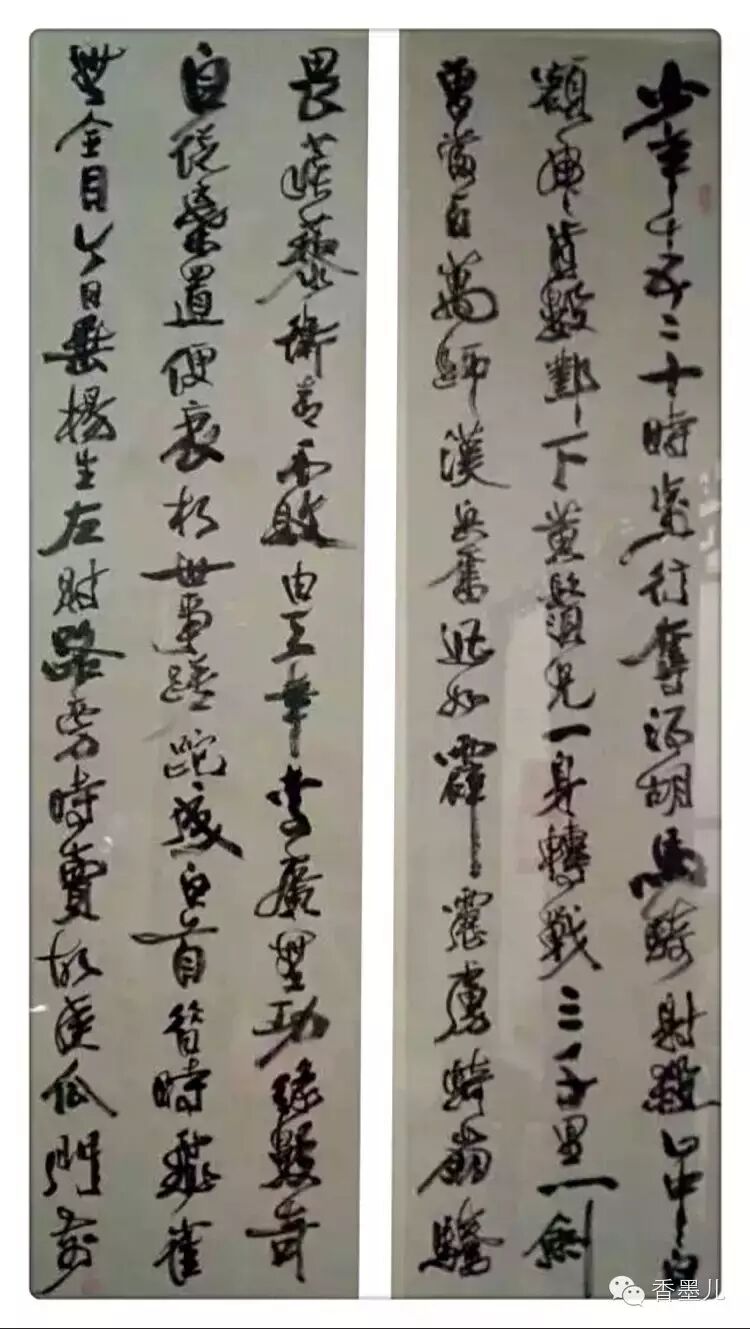 少年十五二十時步行奪得胡馬騎射殺山中白
額虎肯數鄴下黃鬚兒一身轉戰三千里一劍
曾當百萬師漢兵奮迅如霹靂虜騎崩騰
畏蒺藜衛青不敗由天幸李廣無功緣數奇
自從棄置便衰朽世事蹉跎成白首昔時飛雀
無全目今日垂楊生左肘路旁時賣故侯瓜門前
香墨儿